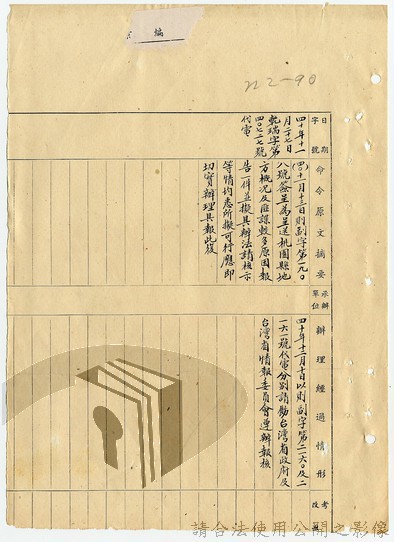 編
22-90
日期
字號
命令原文摘要
承辦
單位
辦理經過情形
考
四十年十一
月二十七日
乾瑞字第
四〇七二七號
代電
(四〇)十一月十三日則副字第一九〇
八號簽呈為呈送桃園縣地
方概況及匪諜較多原因報
告一件並擬具辦法請核示
等情均悉所擬可行應即
切實辦理具報此復
四十年十二月十日以則副字第二一六〇及二
一六一號代電分別請勳台灣省政府及
台灣省情報委員會遵辦報核
請合法使用公開之影像